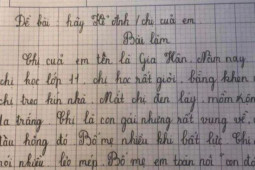 Đề bài hãy tả anh / chị của em
Bài làm
Chị cuả em tên là Gia Hân. Năm nay
chị học lớp 11. chị học rất giỏi. bằng khen
chị treo kín nhà. Mắt chị đen láy. miệng
da trắng. Chị là con gái nhưng rất vụng về.
đỏ Bố mẹ nhiều khi bất lực. Chị
nói nhiều lẻo mép. Bố mẹ em toàn nói "con